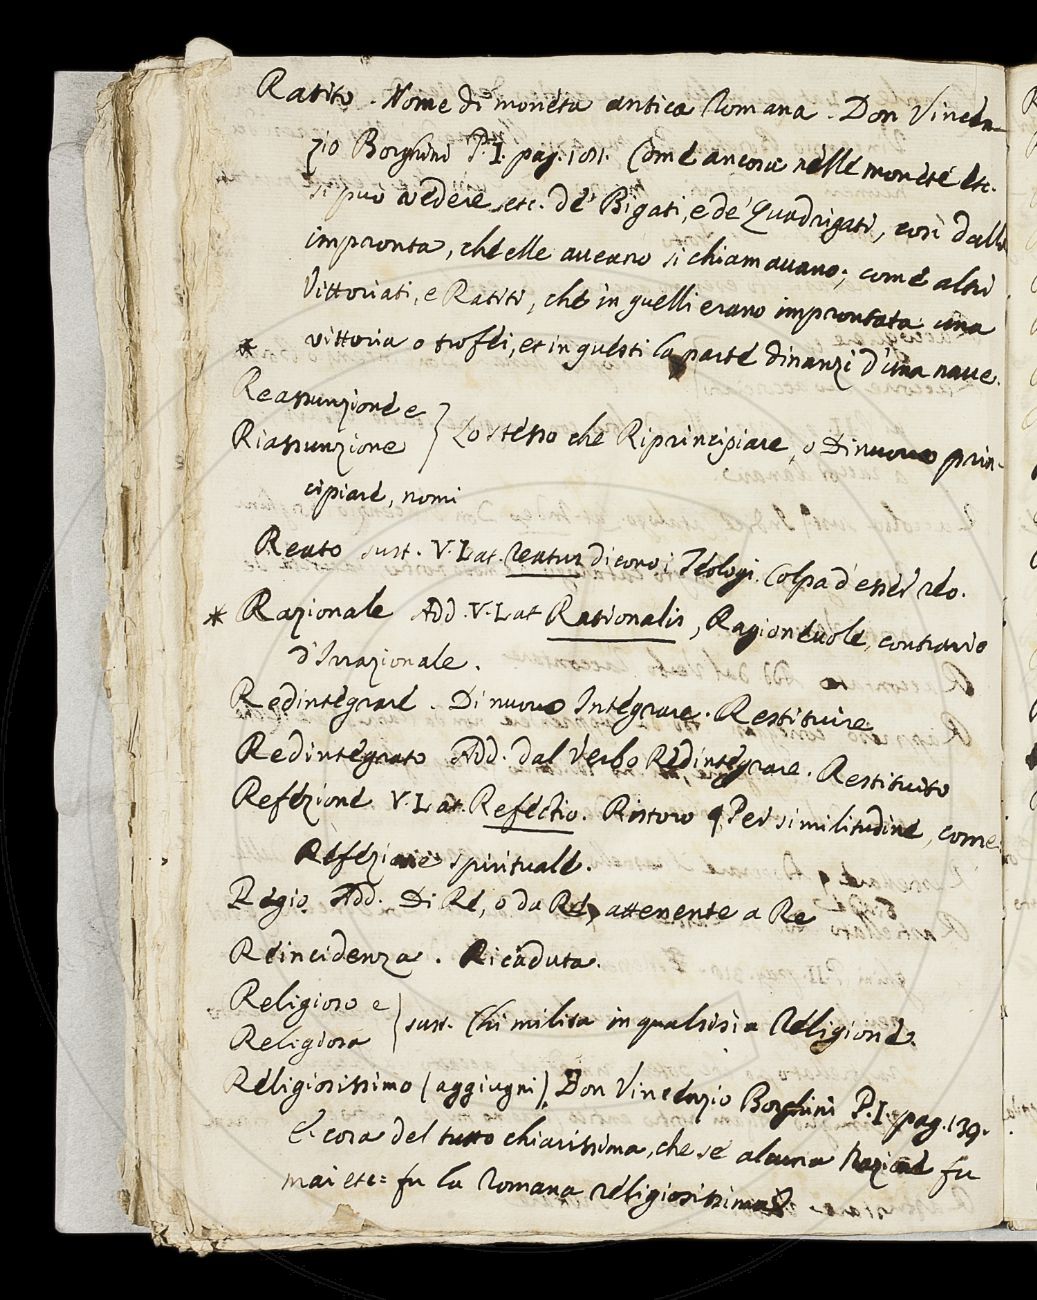 Ratito. Nome di moneta antica Romana. Don Vincen-
zio Borghini P. I. pag. 181. Come ancora nelle monete etc.
si può vedere etc. de' Bigati, e de' Quadrigati, così dalla
impronta, che elle aveano si chiamavano; come altri
Vittoriati, e Ratiti, che in quelli erano improntata una
vittoria o trofei, et in questi la parte dinanzi d'una nave.
* Reassunzione e
Riassunzione } Lo stesso che Riprincipiare, o Di nuovo prin-
cipiare, nomi
Reato sust. V. Lat. reatus dicono i Teologi. Colpa d'esser reo.
* Razionale Add. V. Lat Rationalis, Ragionevole, contrario
d'Irrazionale.
Redintegrare. Di nuovo Integrare. Restituire
Redintegrato Add. dal Verbo Redintegrare. Restituito
Refezione V. Lat. Refectio. Ristoro ¶ Per similitudine, come
Refezione spirituale.
Regio. Add. Di Re, o da Re, attenente a Re
Reincidenza. Ricaduta.
Religioso e
Religiosa } sust. Chi milita in qualsisia Religione.
Religiosissimo (aggiugni) Don Vincenzio Borghini P. I. pag. 139.
È cosa del tutto chiarissima, che se alcuna Nazione fu
mai etc= fu la Romana religiosissima